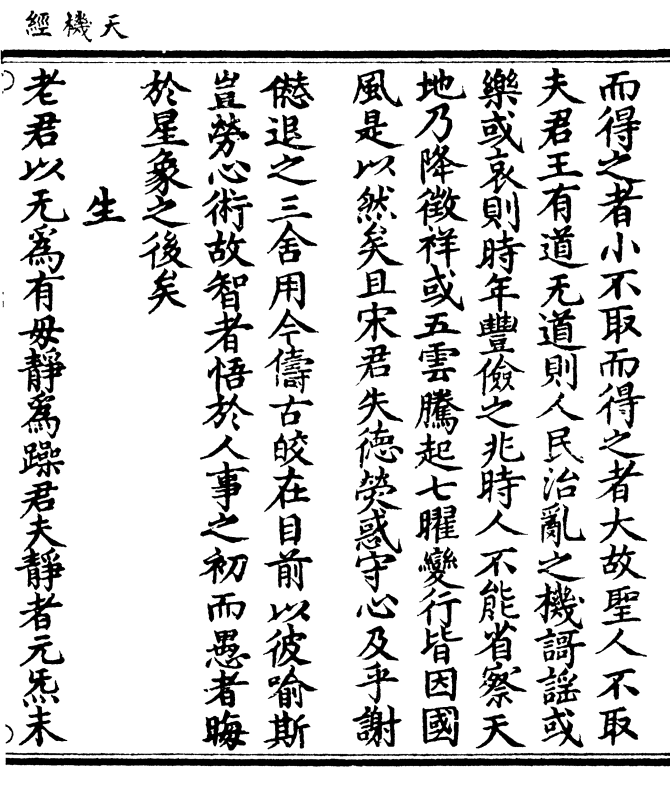 天機經
而得之者小不取而得之者大故聖人不取
夫君王有道无道則人民治亂之機謌謡或
樂或哀則時年豐儉之兆時人不能省察天
地乃降徵祥或五雲騰起七曜變行皆因國
風是以然矣且宋君失德熒惑守心及乎謝
𠎝退之三舍用今儔古皎在目前以彼喻斯
豈勞心術故智者悟於人事之初而愚者晦
於星象之後矣
生
老君以无爲有母靜爲躁君夫靜者元炁未